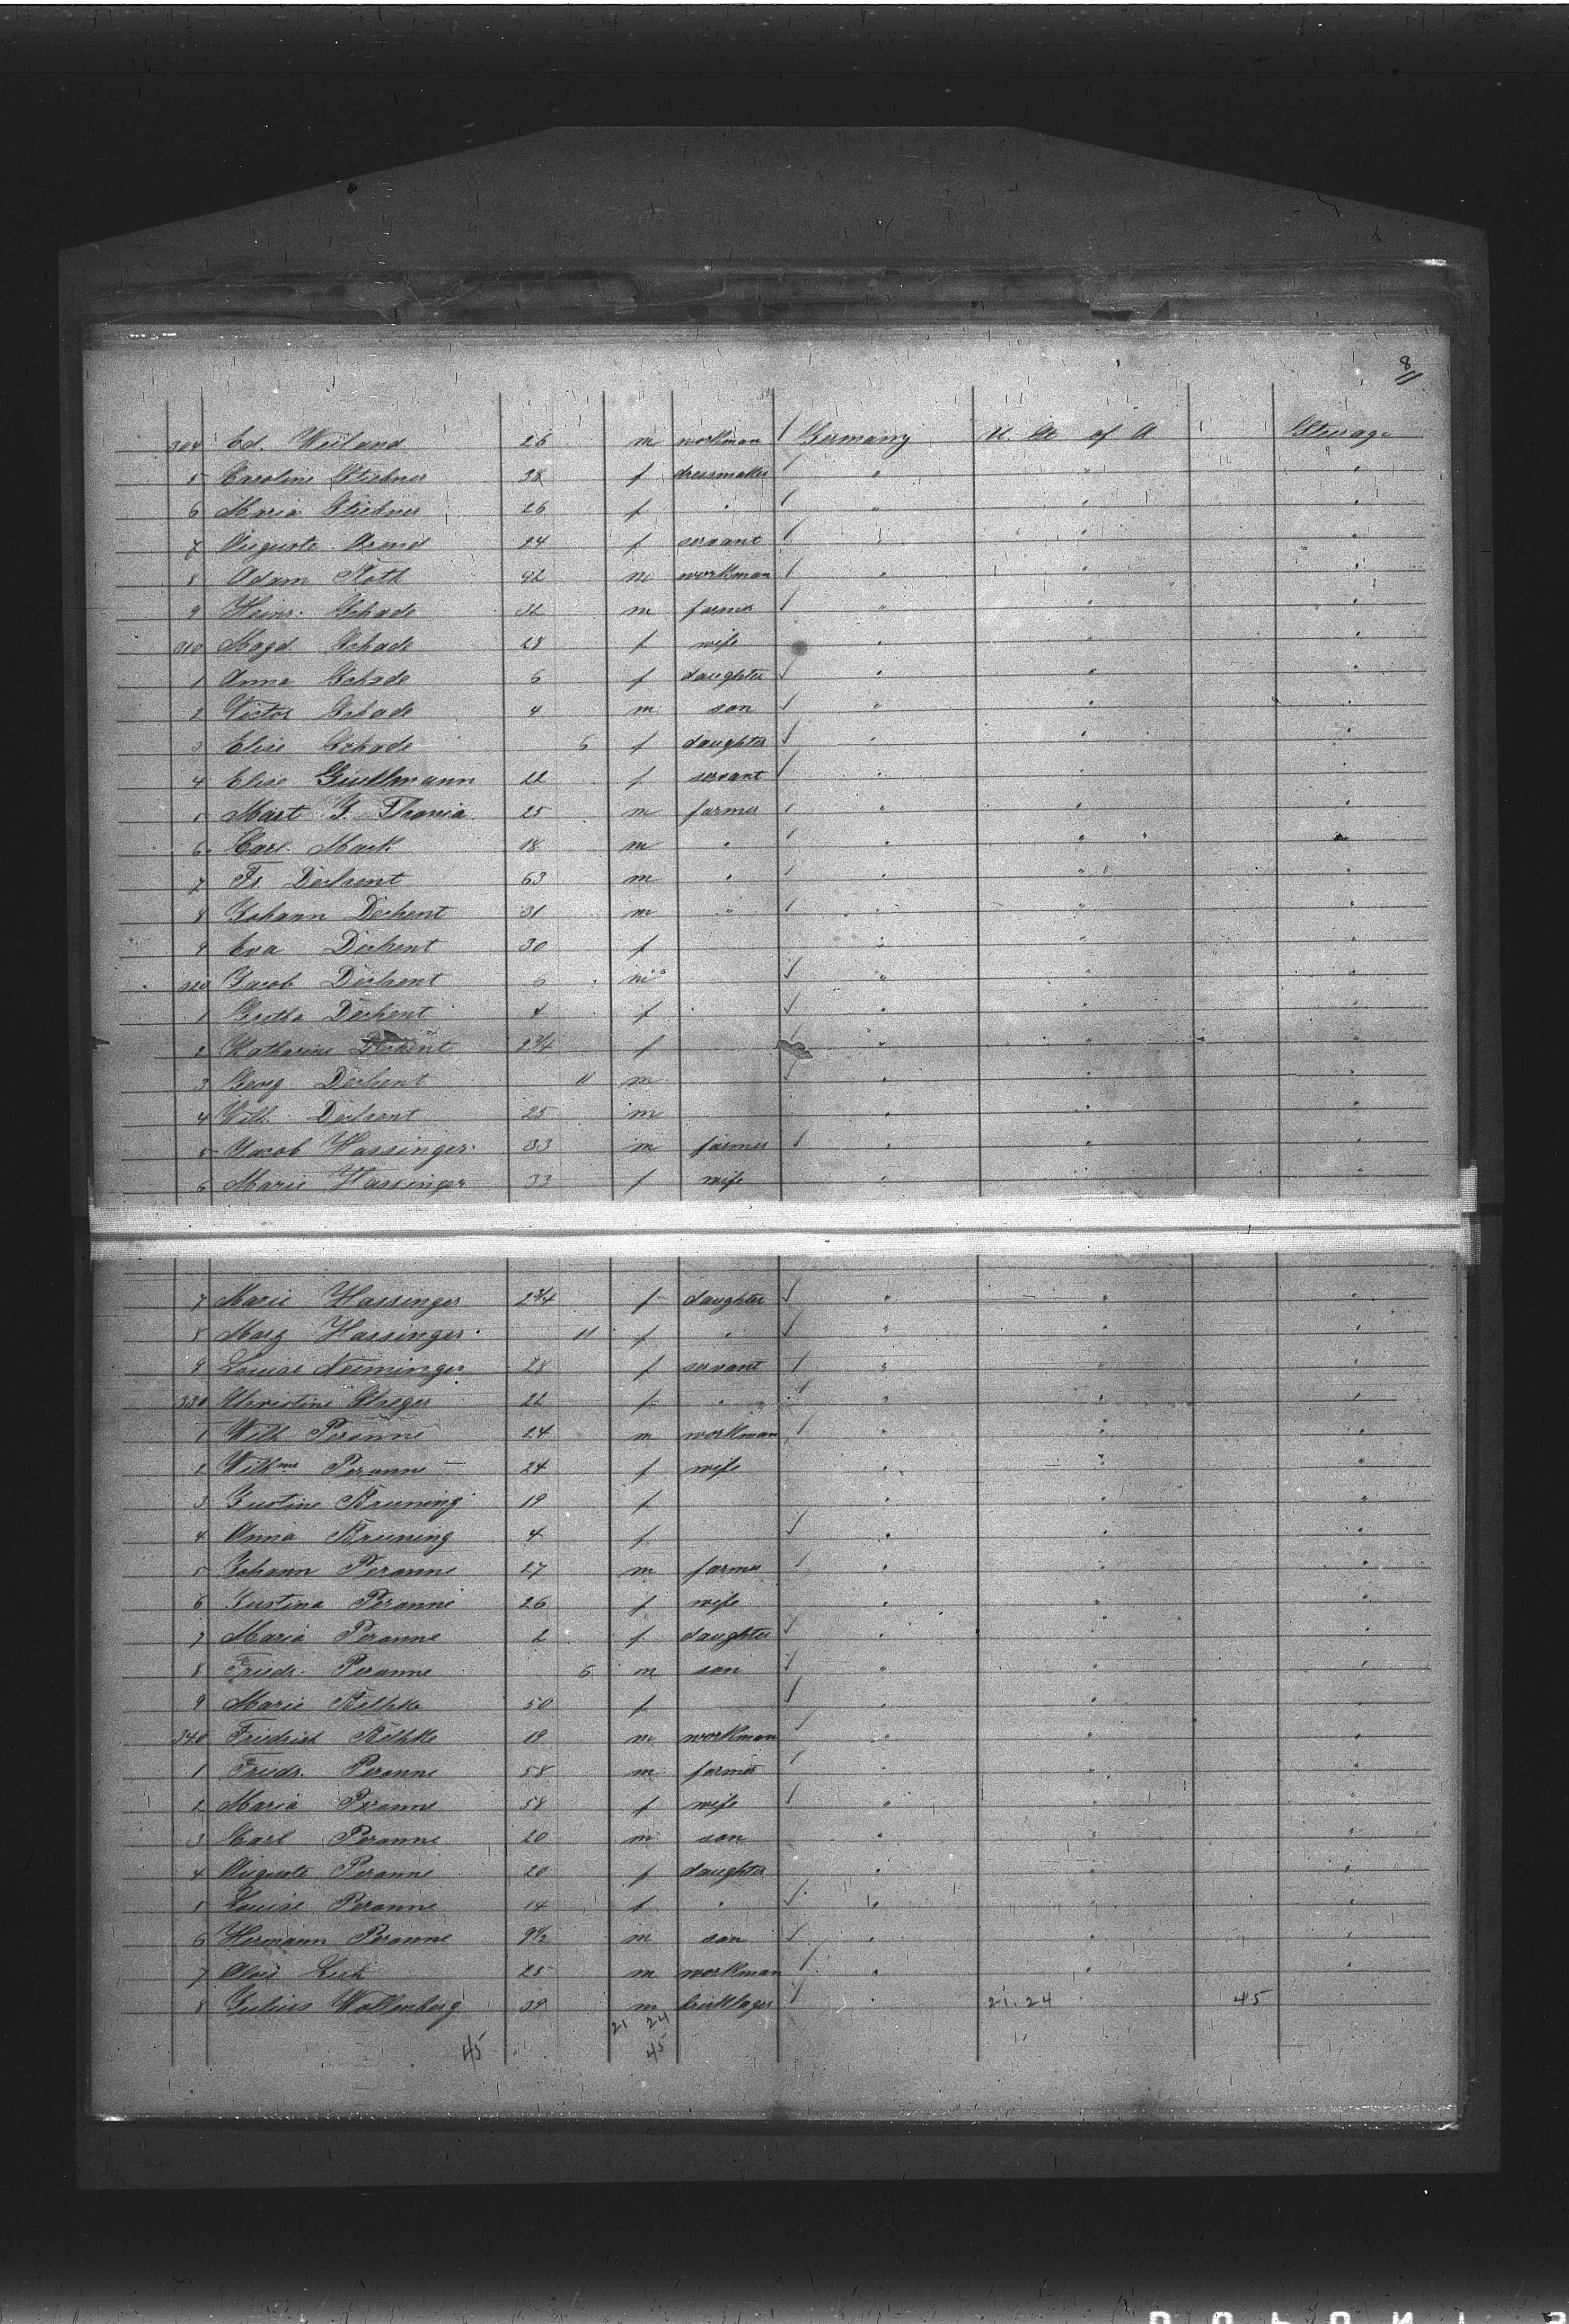 8
304 Ed. Weiland 26 m workman / Germany U. St. of A Steerage
5 Caroline Stiebner 38 f dressmaker / " " "
6 Maria Stiebner 26 f " / " " "
7 Auguste Arend 24 f servant / " " "
8 Adam Roth 42 m workman / " " "
9 Heinr. Schade 32 m farmer / " " "
310 Magd. Schade 28 f wife " " "
1 Anna Schade 6 f daughter / " " "
2 Victor Schade 4 m son / " " "
3 Elise Schade 6 f daughter / " " "
4 Elise 22 f servant / " " "
5 Mart J. Thania 25 m farmer / " " "
6 Carl Mark 18 m " / " " "
7 Fr. Dechent 63 m " / " " "
8 Johann Dechent 31 m " / " " "
9 Eva Dechent 30 f " " "
320 Jacob Dechent 6 m / " " "
1 Gretha Dechent 4 f / " " "
2 Katharine Dechent 2 3/4 f " " "
3 Georg Dechent 11 m / " " "
4 Wilh. Dechent 25 m " " "
5 Jacob Hassinger 33 m farmer / " " "
6 Marie Hassinger 33 f wife " " "
7 Marie Hassinger 2 3/4 f daughter / " " "
8 Marg Hassinger 11 f " / " " "
9 Louise Neeminger 28 f servant / " " "
330 Christine Streger 22 f " / " " "
1 Wilh Peranne 24 m workman / " " "
2 Wilhme Peranne 24 f wife " " "
3 Justine Bruning 19 f " " "
4 Anna Bruning 4 f / " " "
5 Johann Peranne 27 m farmer / " " "
6 Justina Peranne 26 f wife " " "
7 Maria Peranne 2 f daughter / " " "
8 Friedr. Peranne 6 m son / " " "
9 Marie Bethke 50 f / " " "
340 Friedrich Bethke 19 m workman / " " "
1 Friedr. Peranne 58 m farmer / " " "
2 Maria Peranne 58 f wife / " " "
3 Karl Peranne 20 m son " " "
4 Auguste Peranne 20 f daughter " " "
5 Louise Peranne 14 f " / " " "
6 Hermann Peranne 9 1/2 m son / " " "
7 Alois 25 m workman / " " "
8 Julius Wollenberg 39 m bricklayer / " 21.24 45 "
21 24
45 45